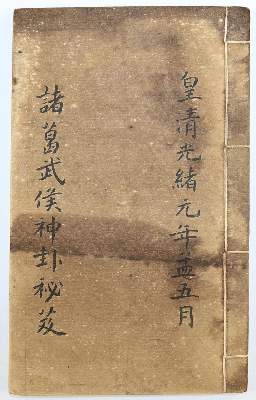 皇清光緒元年孟五月
諸葛武侯神卦祕笈